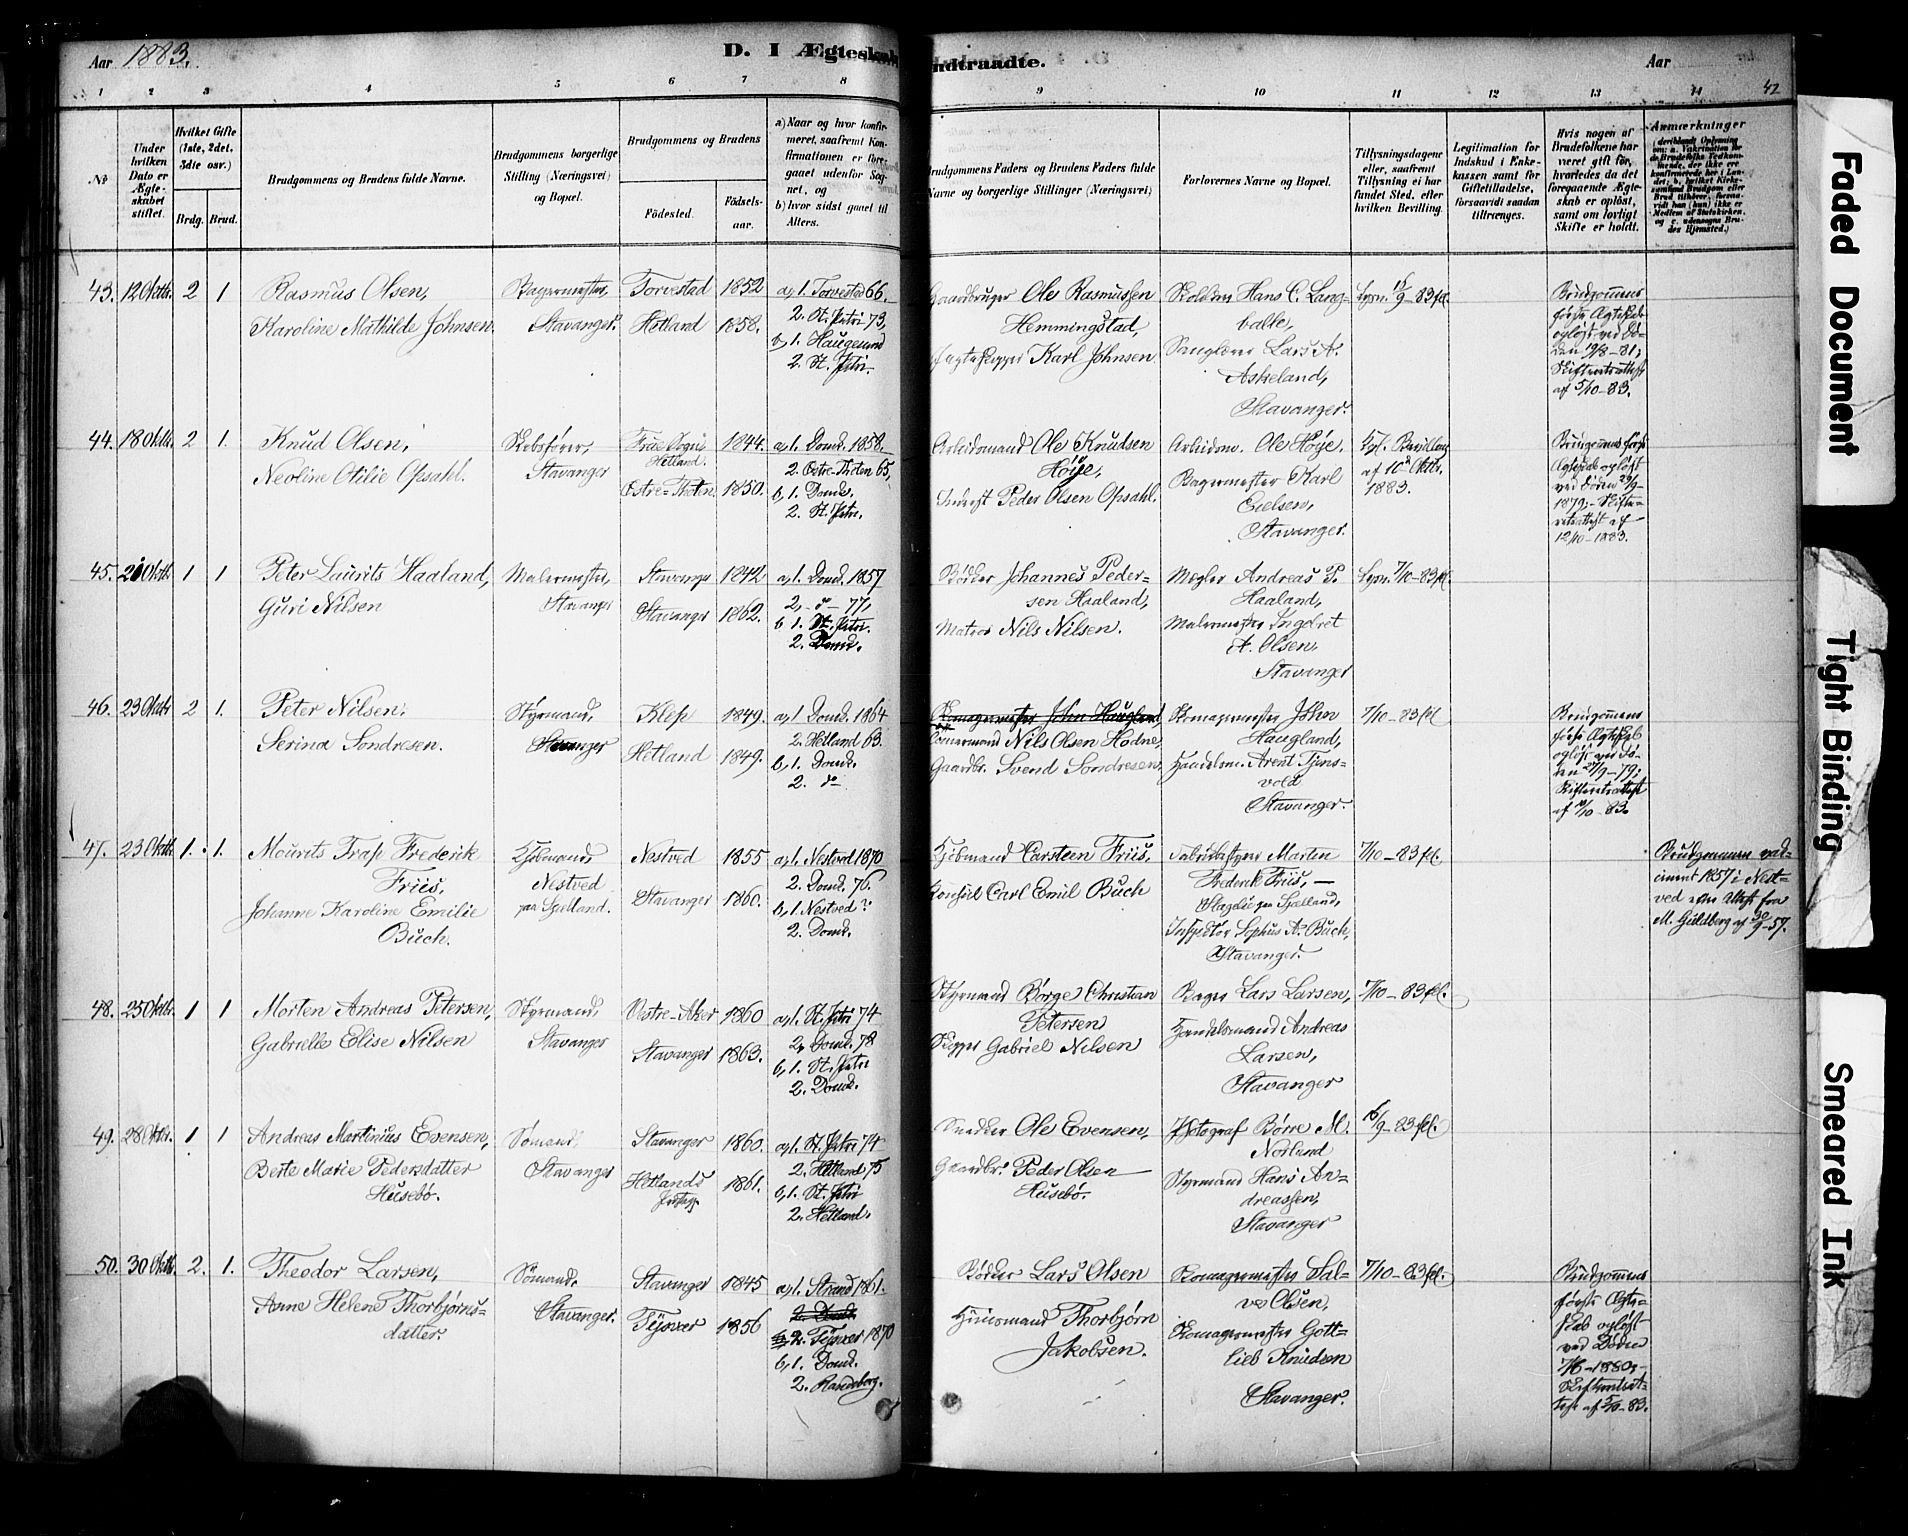 Aar 1883.
D. I Ægteskab
indtraadte.
Aar
1 2 3 4 5 6 7 8 9 10 11 12 13 14 42
No
Under hvilken Dato er Ægteskabet stiftet.
Hvilket Gifte (1ste, 2det, 3die osv.)
Brdg. Brud.
Brudgommens og Brudens fulde Navne.
Brudgommens borgerlige Stilling (Næringsvei) og Bopæl.
Brudgommens og Brudens
Födested.
Födsels-aar.
a) Naar og hvor konfirmeret, saafremt Konfirmationen er foregaaet udenfor Sognet, og
b) hvor sidst gaaet til Alters.
Brudgommens Faders og Brudens Faders fulde Navne og borgerlige Stillinger (Næringsvei)
Forlovernes Navne og Bopæl.
Tillysningsdagene eller, saafremt Tillysning ei har fundet Sted, efter hvilken Bevilling.
Legitimation for Indskud i Enkekassen samt for Giftetilladelse, forsaavidt saadan tiltrænges.
Hvis nogen af Brudefolkene har været gift før, hvorledes da det foregaaende Ægteskab er oplöst, samt om lovligt Skifte er holdt.
Anmærkninger
43. 12 Oktb. 2 1
Rasmus Olsen,
Karoline Mathilde Johnsen.
Bagermester,
Stavanger.
Torvestad 1852
Hetland 1858.
a, 1. Torvestad 66.
2. St. Petri 73,
b, 1. Haugesund
2. St. Petri.
Gaardbruger Ole Rasmussen
Hemmingstad,
Jagtskipper Karl Johnsen
Hans C. Lang-
balle,
Sanglærer Lars A.
Askeland,
Stavanger.
Lysn. 16/9-83 fl.
Brudgommens
første Ægteskab
opløst ved Dö-
den 19/8-81,
Skifteattest
af 5/10-83.
44. 18 Oktb. 2 1.
Knud Olsen,
Neoline Otilie Opsahl.
Rebslører,
Stavanger
Frue Sogn
Hetland. 1844.
Östre-Thoten 1850.
a, 1. Domk. 1858.
2. Östre-Thoten 65,
b, 1. Domk.
2. St. Petri.
Arbeidsmand Ole Knudsen
Höÿe,
Inderst Peder Olsen Opsahl.
Arbeidsm. Ole Höÿe.
Bagermester Karl
Eielsen,
Stavanger.
Kgl. Bevilling
af 10d Oktbr.
1883.
Brudgommens første
Ægteskab opløst
ved Döden 29/9-
1879, Skifte-
retsattest af
12/10-1883.
45. 20 Oktb. 1 1
Peter Laurits Haaland,
Guri Nilsen
Malermester,
Stavanger
Stavanger 1842
Stavanger 1862.
a, 1. Domk. 1857
2, - d - 77,
b 1. St. Petri.
2. Domk.
Bödker Johannes Peder-
sen Haaland,
Matros Nils Nilsen.
Mægler Andreas P.
Haaland,
Malermester Ingebret
A. Olsen,
Stavanger
Lysn. 7/10-83 fl.
46. 23 Oktbr 2 1.
Peter Nilsen,
Serina Sondresen.
Styrmand,
Stavanger
Klep 1849.
Hetland 1849.
a, 1. Domk. 1864
2. Hetland 63.
b, 1. Domk.
2. do
Skomagermester John Haugland
Tömmermand Nils Olsen Hodne,
Gaardbr. Svend Sondresen,
Skomagermester John
Haugland,
Handelsm. Arent Tjens-
vold
Stavanger.
7/10-83 fl
Brudgommens
første Ægteskab
opløst ved Dö-
den 27/9-79,
Skifteretsattest
af 10/10-83.
47. 23 Oktb. 1. 1.
Mourits Trap Frederik
Friis,
Johanne Karoline Emilie
Buch.
Kjöbmand,
Nestved
paa Sjelland.
Nestved 1855
Stavanger 1860.
a, 1. Nestved 1870
2. Domk. 76.
b, 1. Nestved?
2. Domk.
Kjöbmand Carsteen Friis,
Konsul Carl Emil Buch
Fabrikbestyrer Marten
Frederik Friis, —
Slagelse paa Sjælland,
Inspektör Sophus A. Buch,
Stavanger.
7/10-83 fl.
Brudgommen vac-
cineret 1857 i Nest-
ved efter Attest fra
M. Guldberg af 30/9-57.
48. 25 Oktbr. 1 1
Morten Andreas Petersen,
Gabrielle Elise Nilsen
Styrmand,
Stavanger
Vestre-Aker 1860
Stavanger 1863.
a, 1. St. Petri 74
2, Domk. 78
b, 1. St. Petri
2. Domk.
Styrmand Börge Christian
Petersen
Skipper Gabriel Nilsen
Bager Lars Larsen,
Handelsmand Andreas
Larsen,
Stavanger
7/10-83 fl.
49. 28 Oktbr. 1 1
Andreas Martinius Evensen,
Berte Marie Pedersdatter
Husebö.
Sömand,
Stavanger
Stavanger 1860.
Hetlands 1861.
a, 1. St. Petri 74
2. Hetland 75
b, 1. St. Petri
2. Hetland.
Snedker Ole Evensen,
Gaardbr. Peder Olsen
Husebö.
Fotograf Börre M.
Norlund
Styrmand Hans An-
dreassen,
Stavanger
16/9-83 fl.
50. 30 Oktb. 2. 1.
Theodor Larsen,
Anne Helene Thorbjörns-
datter.
Sömand,
Stavanger.
Stavanger 1845
Tysvær 1856
a, 1. Strand 1861.
2. Domk
2. Tysvær 1870
b, 1. Domk.
2. Rosenberg.
Bödker Lars Olsen
Huusmand Thorbjörn
Jakobsen.
Skomagermester Sal-
ve Olsen,
Skomagermester Gott-
lieb Knudsen
Stavanger.
7/10-83 fl.
Brudgommens
første Ægte-
skab opløst
ved Döden
7/6-1880,
Skifteretsat-
test af 5/10-83.
Faded Document
Tight Binding
Smeared Ink